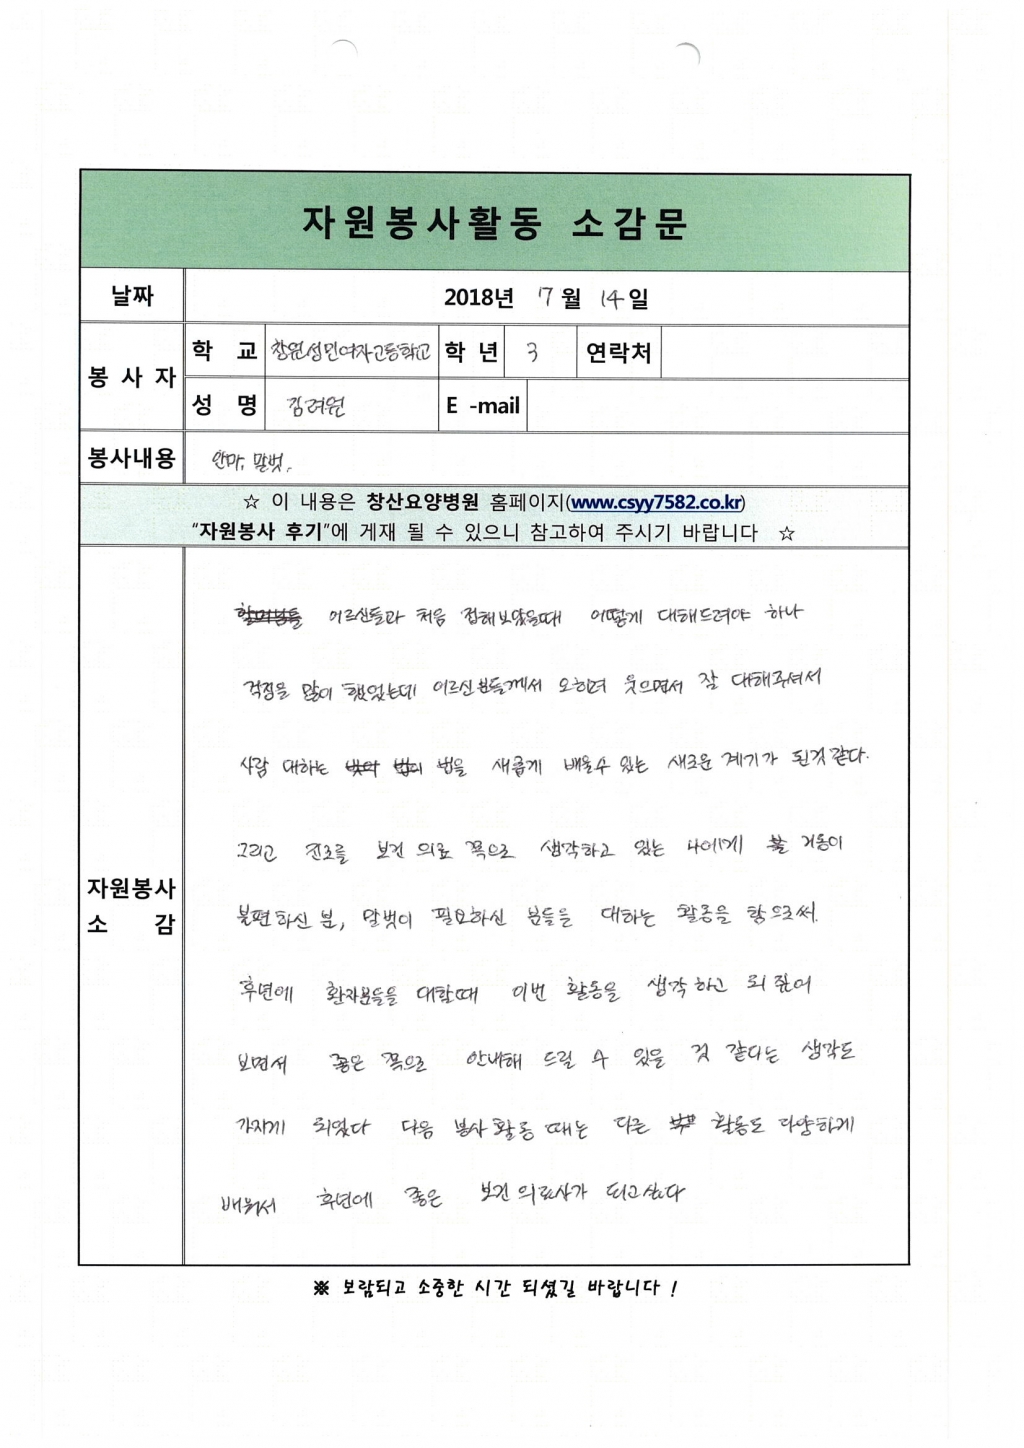 자원봉사활동 소감문
날짜 2018년 7월 14일
봉사자 학 교 창원성민여자고등학교 학 년 3 연락처
성 명 김려원 E -mail
봉사내용 안마, 말벗.
☆ 이 내용은 창산요양병원 홈페이지(www.csyy7582.co.kr)
"자원봉사 후기"에 게재 될 수 있으니 참고하여 주시기 바랍니다 ☆
자원봉사 소 감
어르신들과 처음 접해보았을때 어떻게 대해드려야 하나
걱정을 많이 했었는데 어르신분들께서 오히려 웃으면서 잘 대해주셔서
사람 대하는 법을 새롭게 배울수 있는 새로운 계기가 된것같다.
그리고 진로를 보건 의료 쪽으로 생각하고 있는 나에게 거동이
불편하신 분, 말벗이 필요하신 분들을 대하는 활동을 함으로써
후년에 환자분들을 대할때 이번 활동을 생각하고 되짚어
보면서 좋은 쪽으로 안내해 드릴 수 있을 것 같다는 생각도
가지게 되었다 다음 봉사활동 때는 다른 활동도 다양하게
배워서 후년에 좋은 보건의료사가 되고싶다
※ 보람되고 소중한 시간 되셨길 바랍니다 !